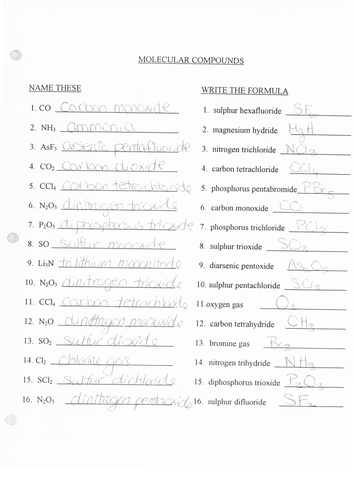 MOLECULAR COMPOUNDS
NAME THESE
1. CO carbon monoxide
2. NH₃ ammonia
3. AsF₅ arsenic pentafluoride
4. CO₂ carbon dioxide
5. CCl₄ carbon tetrachloride
6. N₂O₃ dinitrogen trioxide
7. P₂O₃ diphosphorus trioxide
8. SO sulfur monoxide
9. Li₃N trilithium mononitride
10. N₂O₃ dinitrogen trioxide
11. CCl₄ carbon tetrachloride
12. N₂O dinitrogen monoxide
13. SO₂ sulfur dioxide
14. Cl₂ chlorine gas
15. SCl₂ sulfur dichloride
16. N₂O₅ dinitrogen pentoxide
WRITE THE FORMULA
1. sulphur hexafluoride
2. magnesium hydride MgH
3. nitrogen trichloride NCl₃
4. carbon tetrachloride CCl₄
5. phosphorus pentabromide PBr₅
6. carbon monoxide CO
7. phosphorus trichloride
8. sulphur trioxide
9. diarsenic pentoxide As₂O₅
10. sulphur pentachloride SCl₅
11.oxygen gas O₂
12. carbon tetrahydride
13. bromine gas Br₂
14. nitrogen trihydride NH₃
15. diphosphorus trioxide P₂O₃
16. sulphur difluoride SF₂